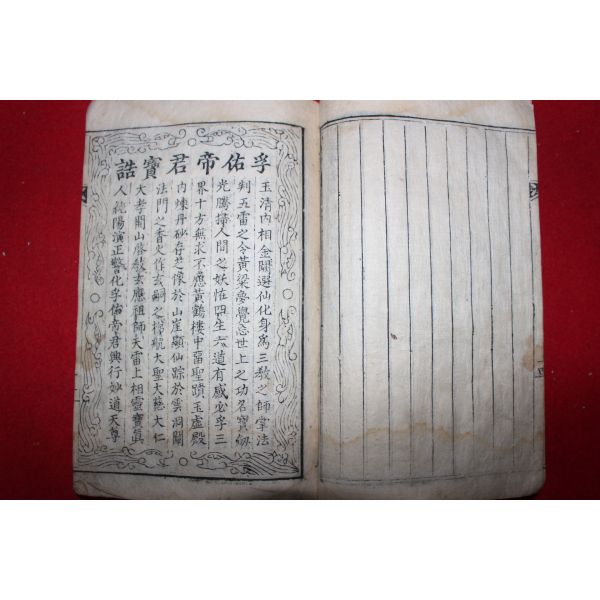 孚佑帝君寶誥
玉清內相金闕選仙化身爲三敎之師掌法
判五雷之令黃粱夢覺忘世上之功名寶劒
光騰掃人間之妖怪四生六道有感必孚三
界十方無求不應黃鶴樓中留聖蹟玉虛殿
內煉丹砂存芝像於山崖顯仙踪於雲洞闡
法門之香火作玄嗣之梯航大聖大慈大仁
大孝開山啓敎玄應祖師天雷上相靈寶眞
人純陽演正警化孚佑帝君興行妙道天尊